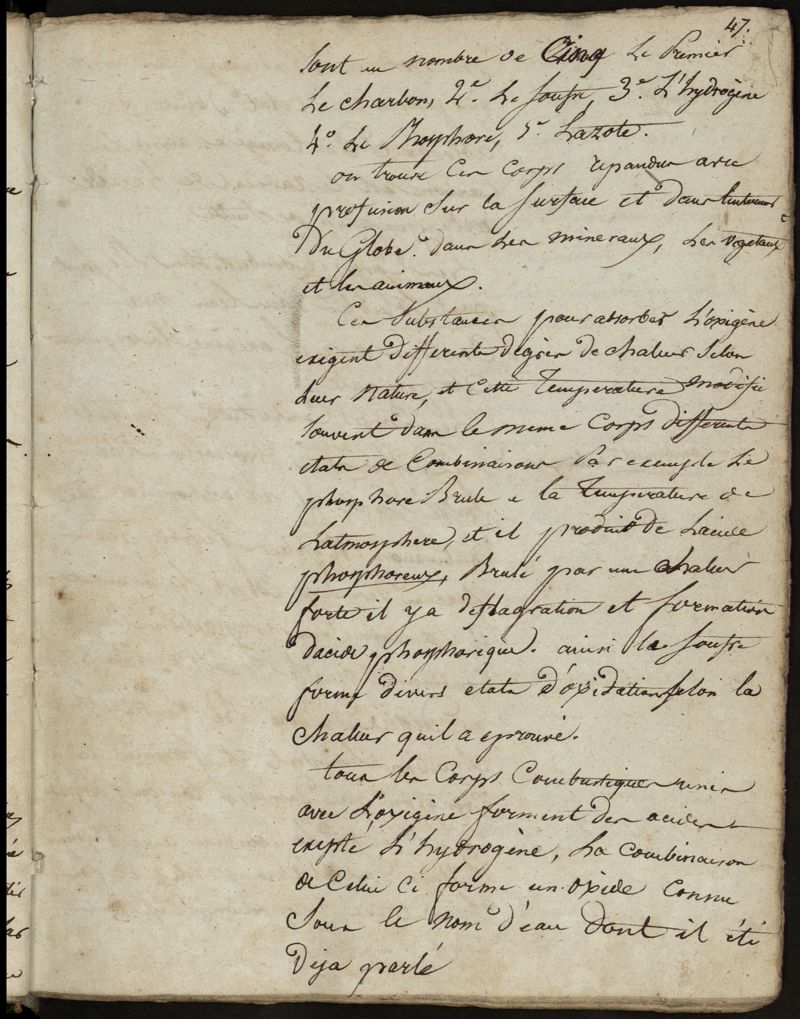 47.
sont au nombre de Cinq Le Premier
Le charbon, 2e. Le soufre, 3e. L'hydrogène
4o. Le Phosphore, 5e. Lazote.
on trouve Ces Corps repandus avec
profusion sur la surface et dans linterieur
Du Globe. dans Les mineraux, Les vegetaux
et les animaux.
Ces substances pour absorber L'oxigène
exigent differents degrés de chaleur selon
leur nature, et Cette Temperature modifie
souvent dans le meme Corps differents
etats de Combinaisons Par exemple Le
phosphore Brule a la Temperature de
Latmosphere, et il produit de Lacide
phosphoreux, Brulé par une chaleur
forte il y a deflagration et formation
dacide phosphorique. ainsi le soufre
forme divers etats d'oxidation selon la
chaleur quil a eprouvé.
tous les Corps Combustiques unis
avec L'oxigène forment des acides
exepté L'hydrogène, La combinaison
de Celui Ci forme un oxide Connu
sous le nom d'eau dont il été
Deja parlé